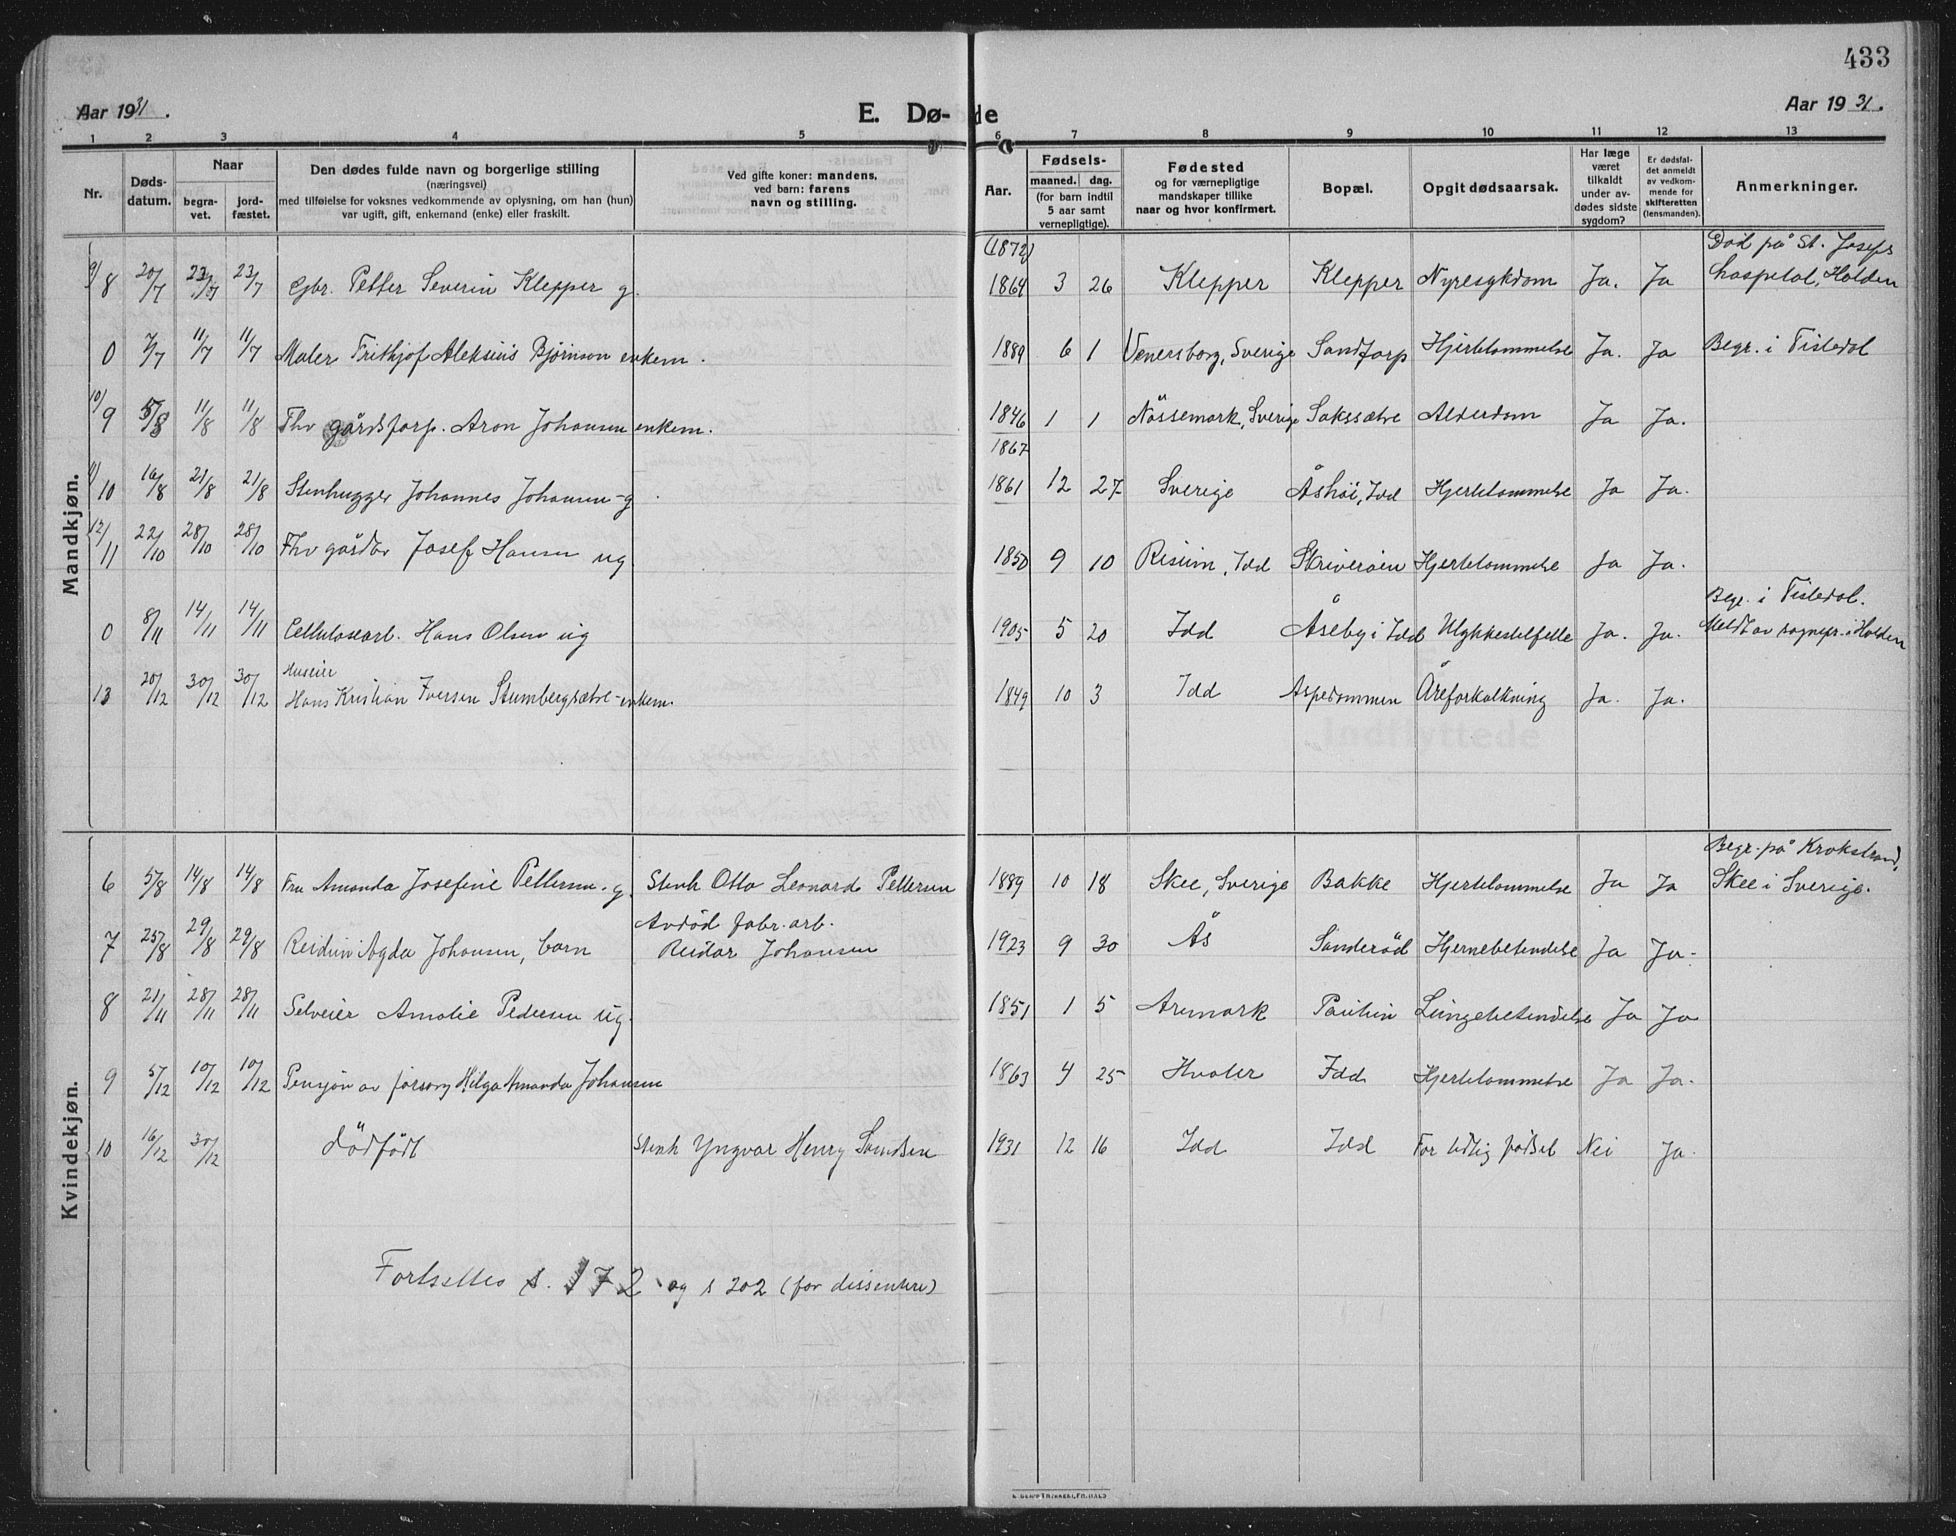 433
Aar 1931.
E. Dø-de
Aar 1931.
1 2 3 4 5 6 7 8 9 10 11 12 13
Nr.
Døds-
datum.
Naar
begra-
vet.
jord-
fæstet.
Den dødes fulde navn og borgerlige stilling
(næringsvei)
med tilføielse for voksnes vedkommende av oplysning, om han (hun)
var ugift, gift, enkemand (enke) eller fraskilt.
Ved gifte koner: mandens,
ved barn: farens
navn og stilling.
Aar.
Fødsels-
maaned. dag.
(for barn indtil
5 aar samt
vernepligtige).
Fødested
og for værnepligtige
mandskaper tillike
naar og hvor konfirmert.
Bopæl.
Opgit dødsaarsak.
Har læge
været
tilkaldt
under av-
dødes sidste
sygdom?
Er dødsfal-
det anmeldt
av vedkom-
mende for
skifteretten
(lensmanden).
Anmerkninger.
Mandkjøn.
(1872) Død på St. Josefs
9/8 20/7 23/7 23/7 Gbr. Petter Severin Klepper g. 1864 3 26 Klepper Klepper Nyresykdom Ja. Ja hospital, Halden
0 7/7 11/7 11/7 Maler Frithjof Aleksius Bjørnson enkem. 1889 6 1 Venersborg, Sverige Sandtorp Hjertelammelse Ja. Ja Begr. i Tistedal
10/9 5/8 11/8 11/8 Fhv gårdsforp. Aron Johansen enkem. 1846 1 1 Nössemark, Sverige Sakssætre Alderdom Ja Ja.
1867
11/10 16/8 21/8 21/8 Stenhugger Johannes Johansen - g. 1861 12 27 Sverige Åshöi, Idd Hjertelammelse Ja Ja.
12/11 22/10 28/10 28/10 Fhv gårdbr Josef Hansen ug 1850 9 10 Risum, Idd Skriveröen Hjertelammelse Ja Ja.
Begr. i Tistedal.
0 8/11 14/11 14/11 Cellulosearb. Hans Olsen ug 1905 5 20 Idd Åseby i Idd Ulykkestilfelle Ja. Ja. Meldt av sognepr. i Halden
Huseier
13 20/12 30/12 30/12 Hans Kristian Iversen Stumbergsætre - enkem. 1849 10 3 Idd Aspedammen Åreforkalkning Ja. Ja.
Kvindekjøn.
Begr. på Krokstrand,
6 5/8 14/8 14/8 Fru Amanda Josefine Pettersen - g. Stenh Otto Leonard Pettersen 1889 10 18 Skee, Sverige Bakke Hjertelammelse Ja Ja Skee i Sverige.
Avdød fabr. arb.
7 25/8 29/8 29/8 Reidun Agda Johansen, barn Reidar Johansen 1923 9 30 Ås Sanderöd Hjernebetendelse Ja Ja.
8 21/11 28/11 28/11 Selveier Amalie Pedersen ug. 1851 1 5 Aremark Paulin Lungebetendelse Ja Ja
9 5/12 10/12 10/12 Pensjon av forsorg Helga Amanda Johansen 1863 4 25 Hvaler Idd Hjertelammelse Ja Ja.
10 16/12 30/12 dødfødt Stenh Yngvar Henry Sandsen 1931 12 16 Idd Idd For tidlig fødsel Nei Ja.
Fortsettes s. 172 og s 202 (for dissentere)